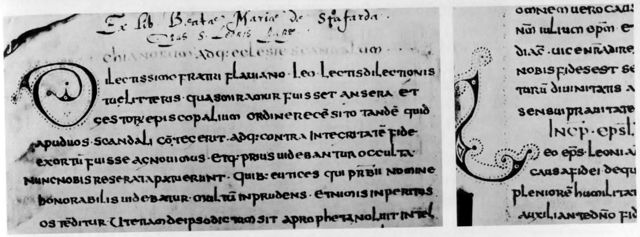 Ex lib Beatae Mariae de Stafarda
CHIANORUM ADQ: ECLESIE SCANDALUM
Dilectissimo fratri flauiano · leo · lectis dilectionis
tue litteris · quas miramur fuisset ansera et
gestorū episcopalium ordine recēsito tandē quid
apud uos scandali cōtegerit · adq: contra integritatē fide
exortū fuisse agnouimus · et q: prius uidebantur occulta ·
nunc nobis reserata patuerunt · quib: eutices qui prbii nomine
honorabilis uidebatur · multū inprudens · et nimis inperitus
ostēditur ut etiam de ipso dictum sit a propheta noluit intel
omnem uero cau
num iulium opm et
diac · uice nra dire
nobis fides est se
turū diuinitatis a
sensui prauitate
INCP · EPSL
Leo eps · leoni a
causa fidei dequ
pleniore humilitat
auxiliante dno fid